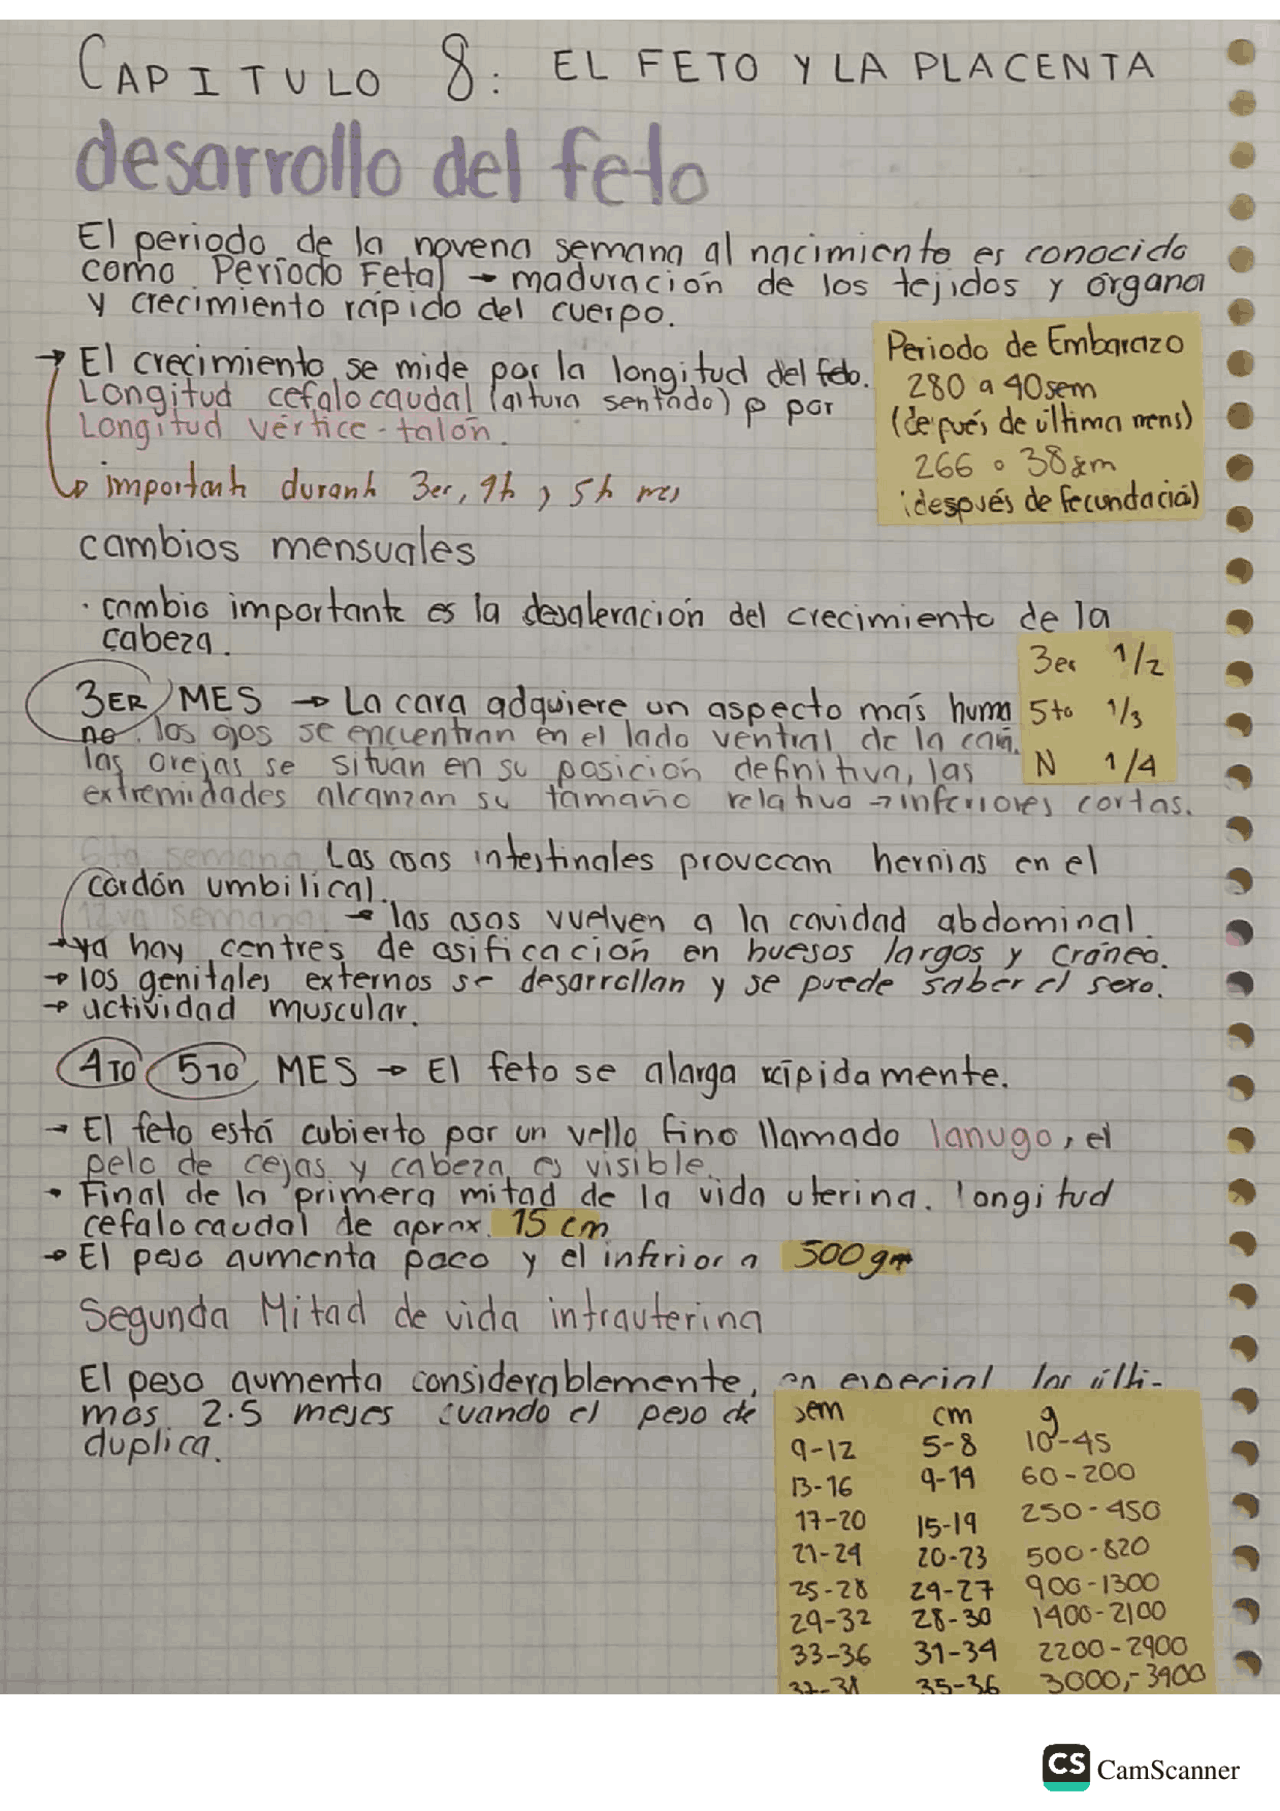 CAPITULO 8: EL FETO Y LA PLACENTA
desarrollo del feto
El periodo de la novena semana al nacimiento es conocido
como Período Fetal → maduración de los tejidos y órgano
y crecimiento rápido del cuerpo.
→ El crecimiento se mide por la longitud del feto.
Longitud cefalocaudal (altura sentado) o por
Longitud vértice-talón.
↳ important durant 3er, 4t, y 5t mes
Periodo de Embarazo
280 a 40sem
(depués de última mens)
266 o 38sem
(después de fecundació)
cambios mensuales
· cambio importante es la desaleración del crecimiento de la
cabeza.
3er 1/2
5to 1/3
N 1/4
3ER MES → La cara adquiere un aspecto más huma
no. los ojos se encuentran en el lado ventral de la cara.
las orejas se situan en su posición definitiva, las
extremidades alcanzan su tamaño relativo → inferiores cortas.
6ta semana Las asas intestinales provocan hernias en el
cordón umbilical.
12va semana: → las asas vuelven a la cavidad abdominal.
→ ya hay centros de osificación en huesos largos y cráneo.
→ los genitales externos se desarrollan y se puede saber el sexo.
→ actividad muscular.
4TO 5TO MES → El feto se alarga rápidamente.
→ El feto está cubierto por un vello fino llamado lanugo, el
pelo de cejas y cabeza es visible.
· Final de la primera mitad de la vida uterina. longitud
cefalocaudal de aprox. 15 cm
→ El peso aumenta poco y el inferior a 500 gr
Segunda Mitad de vida intrauterina
El peso aumenta considerablemente, en especial los últi-
mos 2.5 meses cuando el peso de
duplica.
sem cm g
9-12 5-8 10-45
13-16 9-14 60-200
17-20 15-19 250-450
21-24 20-23 500-820
25-28 24-27 900-1300
29-32 28-30 1400-2100
33-36 31-34 2200-2900
37-38 35-36 3000-3400
CS CamScanner